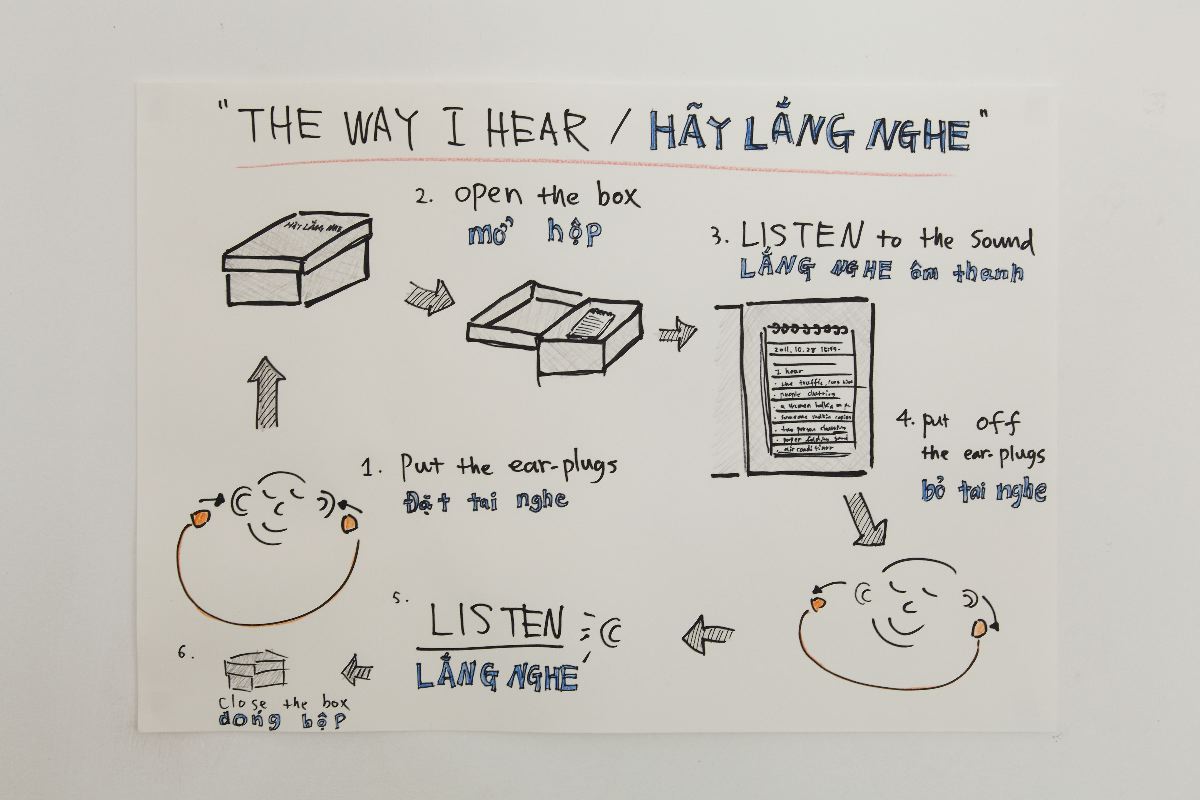 "THE WAY I HEAR / HÃY LẮNG NGHE"
HÃY LẮNG NGHE
1. Put the ear-plugs
Đặt tai nghe
2. open the box
mở hộp
3. LISTEN to the sound
LẮNG NGHE âm thanh
I hear
people chatting
paper folding sound
air conditioner
4. put off
the ear-plugs
bỏ tai nghe
5. LISTEN
LẮNG NGHE
6.
Close the box
dóng hộp